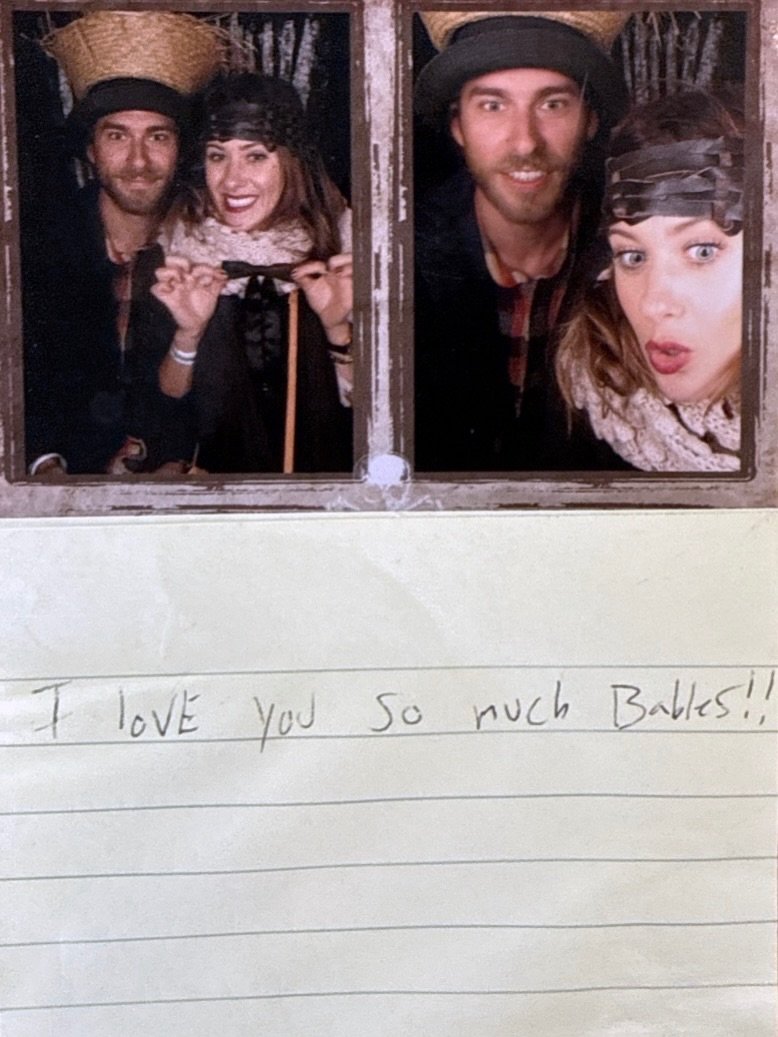 I lOVE YOU SO much Babies!!